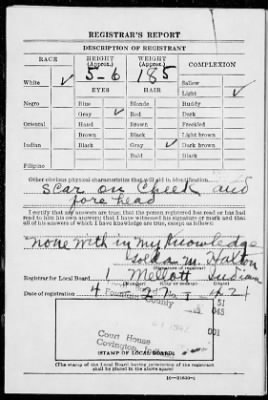 REGISTRAR'S REPORT
DESCRIPTION OF REGISTRANT
RACE HEIGHT (Approx.) WEIGHT (Approx.) COMPLEXION
5-6 185
White ✓ Sallow
EYES HAIR Light ✓
Negro Blue Blonde Ruddy
Gray ✓ Red Dark
Oriental Hazel Brown Freckled
Brown Black Light brown
Indian Black Gray ✓ Dark brown
Bald Black
Filipino
Other obvious physical characteristics that will aid in identification
Scar on Cheek and
forehead
I certify that my answers are true; that the person registered has read or has had
read to him his own answers; that I have witnessed his signature or mark and that
all of his answers of which I have knowledge are true, except as follows:
none with in my knowledge
M. Halton
Registrar for Local Board 1 Mellott Indiana
Date of registration 4 27 42
51
045
001
Court House
Covington,
(STAMP OF LOCAL BOARD)
(The stamp of the Local Board having jurisdiction of the registrant
shall be placed in the above space)